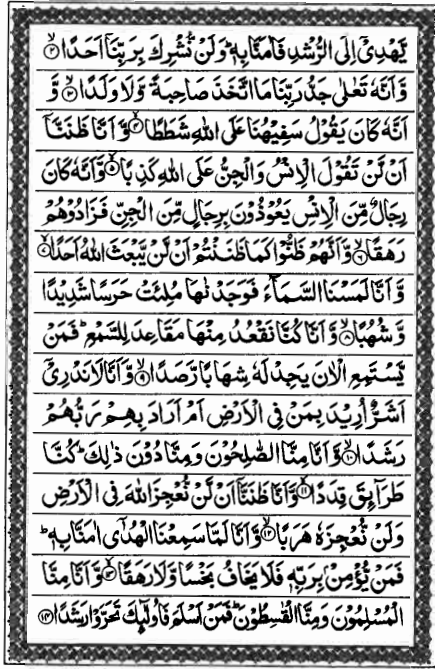 يَّهْدِىْۤ اِلَى الرُّشْدِ فَاٰمَنَّا بِهٖؕ وَلَنْ نُّشْرِكَ بِرَبِّنَاۤ اَحَدًا ۙ﴿۲﴾
وَّاَنَّهٗ تَعٰلٰى جَدُّ رَبِّنَا مَا اتَّخَذَ صَاحِبَةً وَّلَا وَلَدًا ۙ﴿۳﴾ وَّ
اَنَّهٗ كَانَ يَقُوْلُ سَفِيْهُنَا عَلَى اللّٰهِ شَطَطًا ۙ﴿۴﴾ وَّاَنَّا ظَنَنَّاۤ
اَنْ لَّنْ تَقُوْلَ الْاِنْسُ وَالْجِنُّ عَلَى اللّٰهِ كَذِبًا ۙ﴿۵﴾ وَّاَنَّهٗ كَانَ
رِجَالٌ مِّنَ الْاِنْسِ يَعُوْذُوْنَ بِرِجَالٍ مِّنَ الْجِنِّ فَزَادُوْهُمْ
رَهَقًا ۙ﴿۶﴾ وَّاَنَّهُمْ ظَنُّوْا كَمَا ظَنَنْتُمْ اَنْ لَّنْ يَّبْعَثَ اللّٰهُ اَحَدًا ۙ﴿۷﴾
وَّاَنَّا لَمَسْنَا السَّمَآءَ فَوَجَدْنٰهَا مُلِئَتْ حَرَسًا شَدِيْدًا
وَّشُهُبًا ۙ﴿۸﴾ وَّاَنَّا كُنَّا نَقْعُدُ مِنْهَا مَقَاعِدَ لِلسَّمْعِؕ فَمَنْ
يَّسْتَمِعِ الْاٰنَ يَجِدْ لَهٗ شِهَابًا رَّصَدًا ۙ﴿۹﴾ وَّاَنَّا لَا نَدْرِىْۤ
اَشَرٌّ اُرِيْدَ بِمَنْ فِى الْاَرْضِ اَمْ اَرَادَ بِهِمْ رَبُّهُمْ
رَشَدًا ۙ﴿۱۰﴾ وَّاَنَّا مِنَّا الصّٰلِحُوْنَ وَمِنَّا دُوْنَ ذٰلِكَؕ كُنَّا
طَرَآئِقَ قِدَدًا ۙ﴿۱۱﴾ وَّاَنَّا ظَنَنَّاۤ اَنْ لَّنْ نُّعْجِزَ اللّٰهَ فِى الْاَرْضِ
وَلَنْ نُّعْجِزَهٗ هَرَبًا ۙ﴿۱۲﴾ وَّاَنَّا لَمَّا سَمِعْنَا الْهُدٰٓى اٰمَنَّا بِهٖؕ
فَمَنْ يُّؤْمِنْۢ بِرَبِّهٖ فَلَا يَخَافُ بَخْسًا وَّلَا رَهَقًا ۙ﴿۱۳﴾ وَّاَنَّا مِنَّا
الْمُسْلِمُوْنَ وَمِنَّا الْقٰسِطُوْنَؕ فَمَنْ اَسْلَمَ فَاُولٰٓئِكَ تَحَرَّوْا رَشَدًا ﴿۱۴﴾